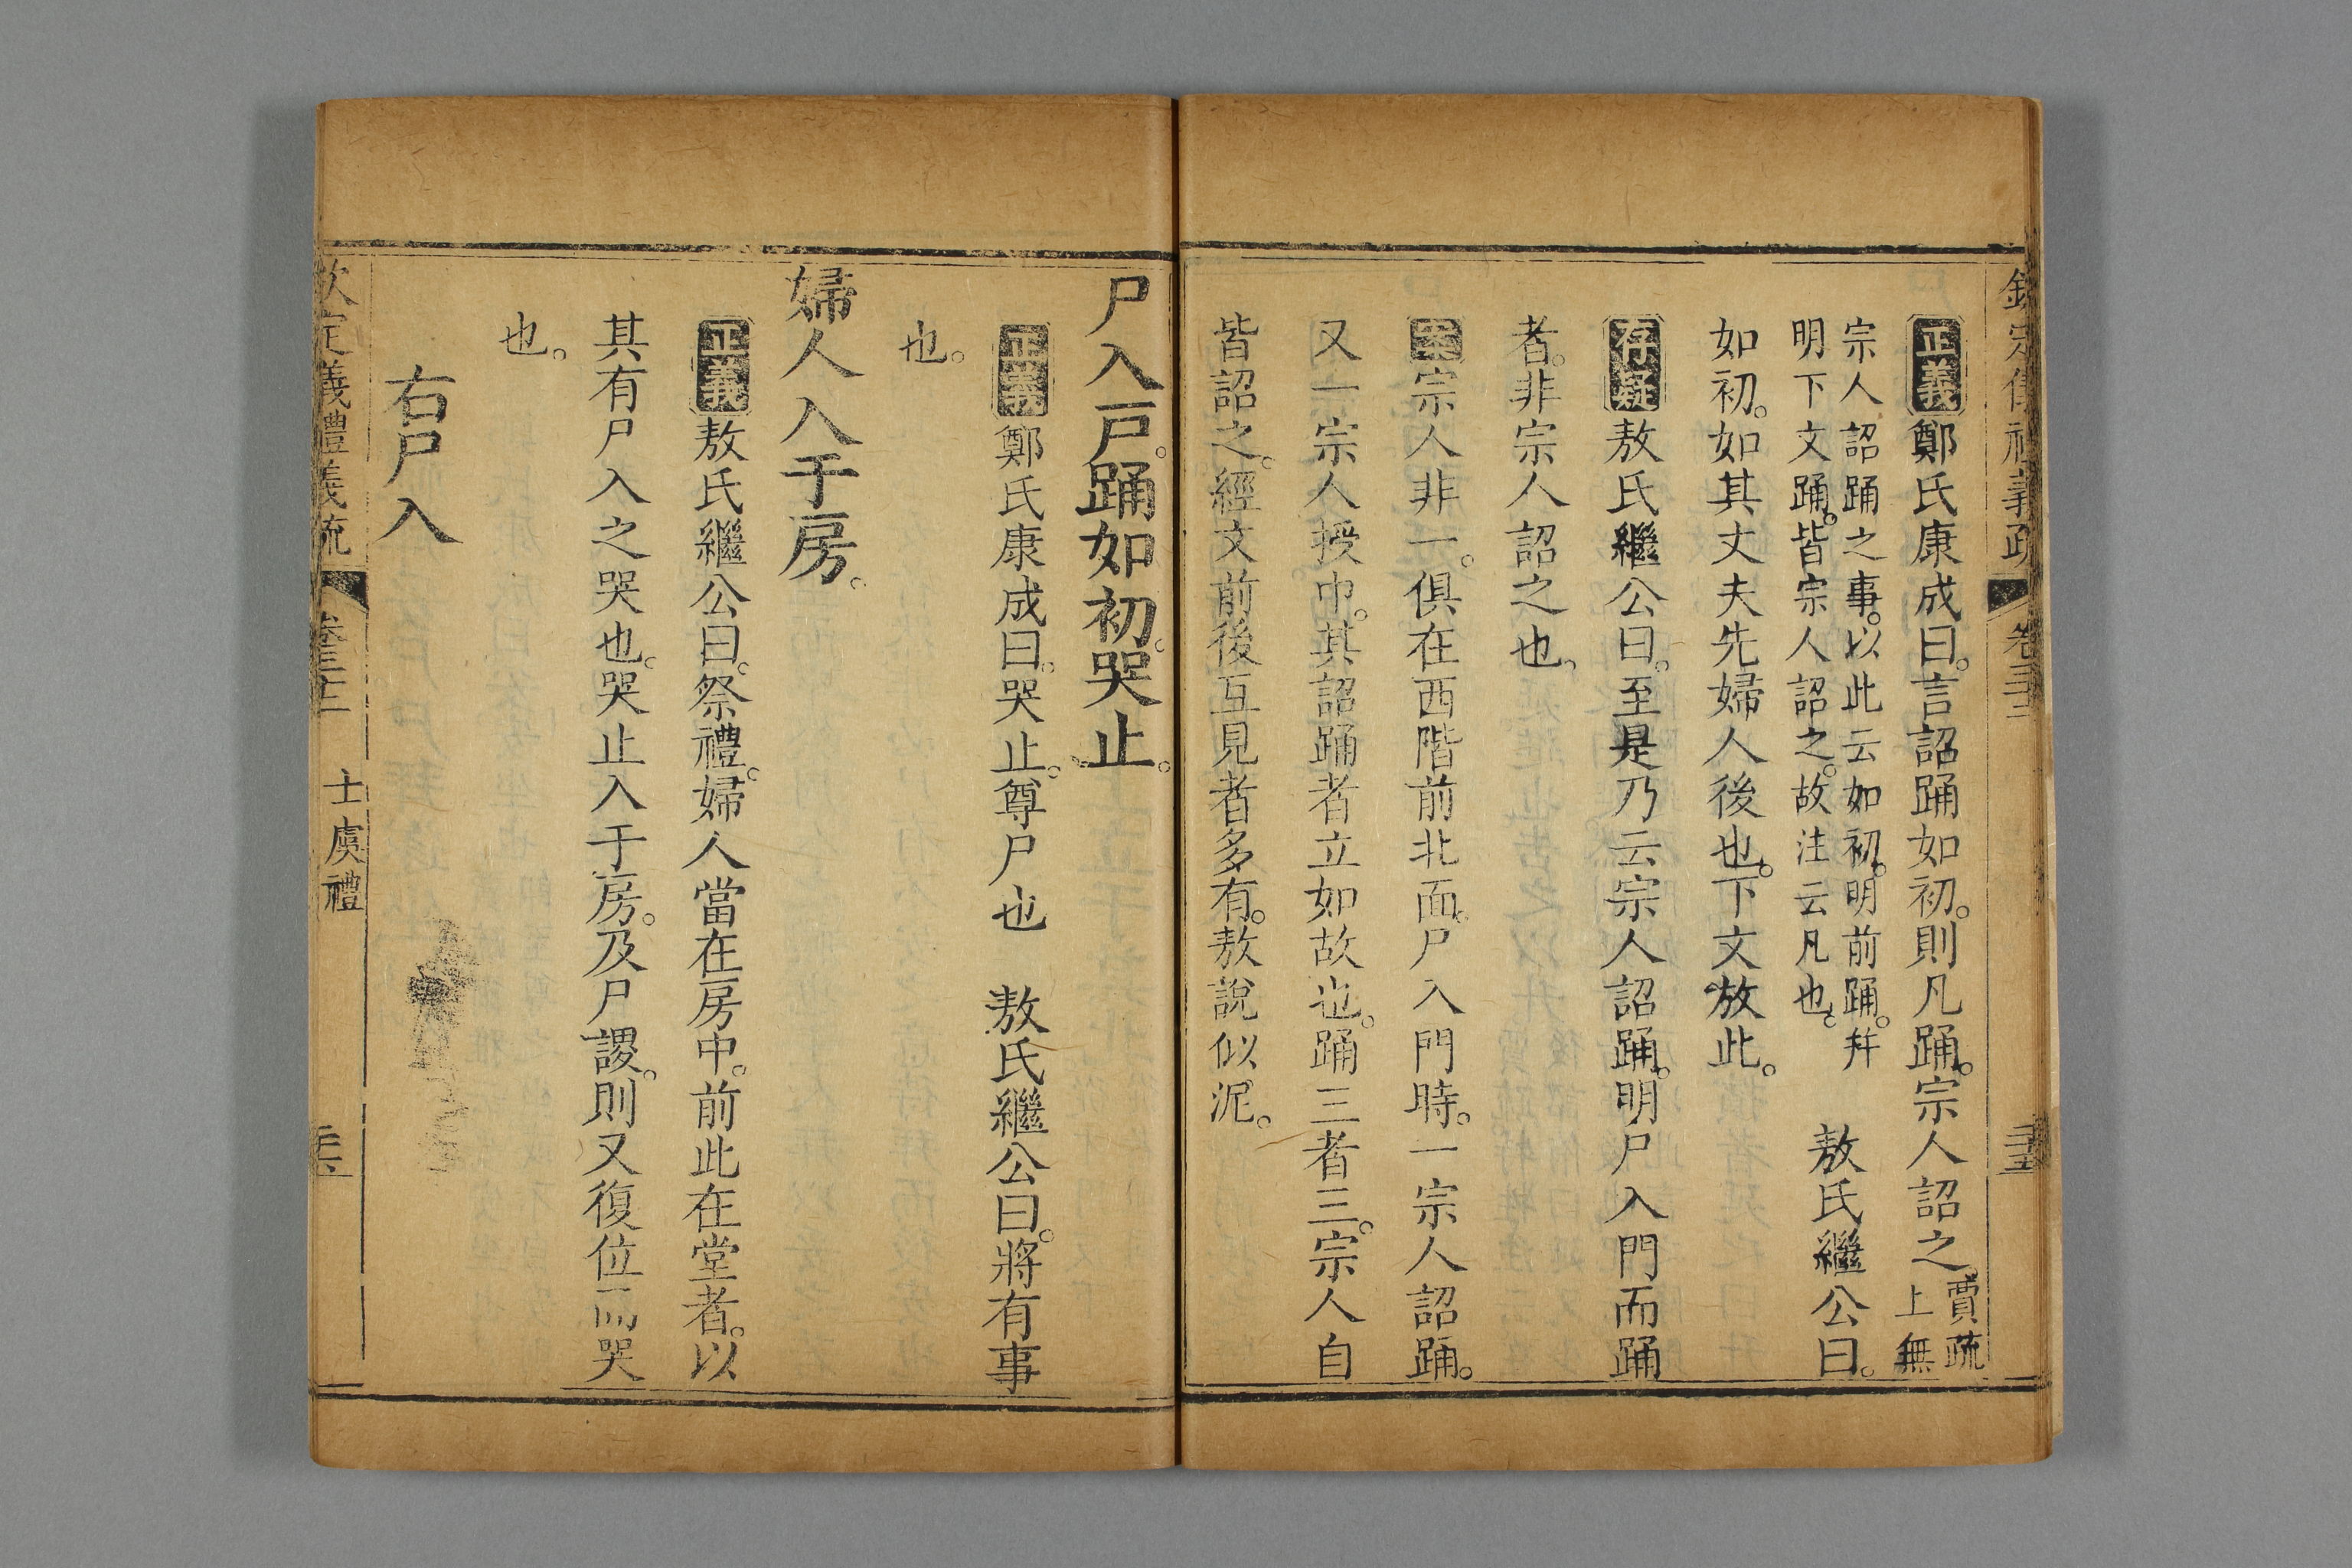 欽定儀禮義疏 卷三十二 三十五
正義鄭氏康成曰。言詔踊如初。則凡踊。宗人詔之。賈疏上無
宗人詔踊之事。以此云如初。明前踊。幷
明下文踊。皆宗人詔之。故注云凡也。 敖氏繼公曰。
如初。如其丈夫先婦人後也。下文放此。
存疑敖氏繼公曰。至是乃云宗人詔踊。明尸入門而踊
者。非宗人詔之也。
案宗人非一。俱在西階前北面。尸入門時。一宗人詔踊。
又一宗人授巾。其詔踊者立如故也。踊三者三。宗人自
皆詔之。經文前後互見者多有。敖說似泥。
尸入戸。踊如初。哭止。
正義鄭氏康成曰。哭止。尊尸也 敖氏繼公曰。將有事
也。
婦人入于房。
正義敖氏繼公曰。祭禮。婦人當在房中。前此在堂者。以
其有尸入之哭也。哭止入于房。及尸謖。則又復位而哭
也。
右尸入
欽定儀禮義疏 卷三十二 士虞禮